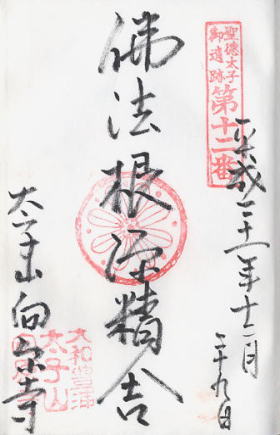 聖徳太子
御遺跡
第十二番
平成二十一年十二月
二十九日
佛法根源精舎
大和豊浦
太子山
太子山向原寺